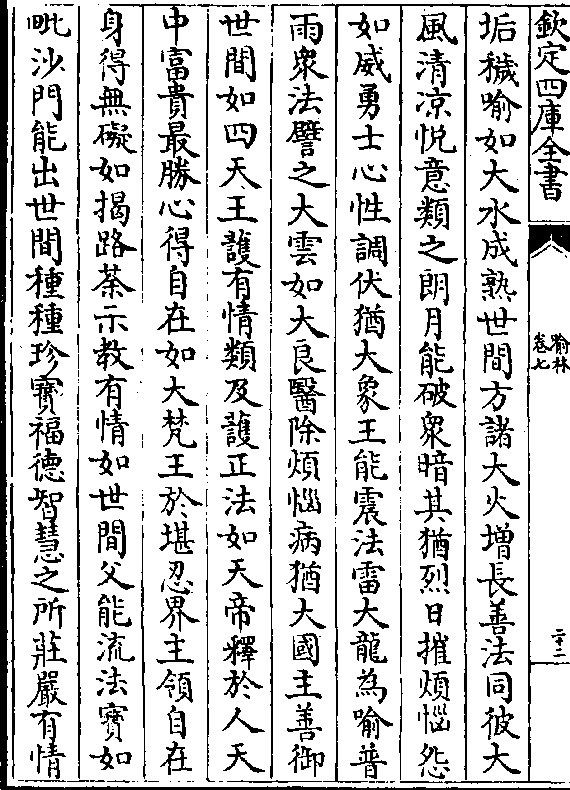 欽定四庫全書
喻林
卷七
二十二
垢穢喻如大水成熟世間方諸大火増長善法同彼大
風清凉悅意類之朗月能破衆暗其猶烈日摧煩惱怨
如威勇士心性調伏猶大象王能震法雷大龍為喻普
雨衆法譬之大雲如大良醫除煩惱病猶大國主善御
世間如四天王護有情類及護正法如天帝釋於人天
中富貴最勝心得自在如大梵王於堪忍界主領自在
身得無礙如揭路荼示教有情如世間父能流法寳如
毗沙門能出世間種種珍寳福德智慧之所莊嚴有情